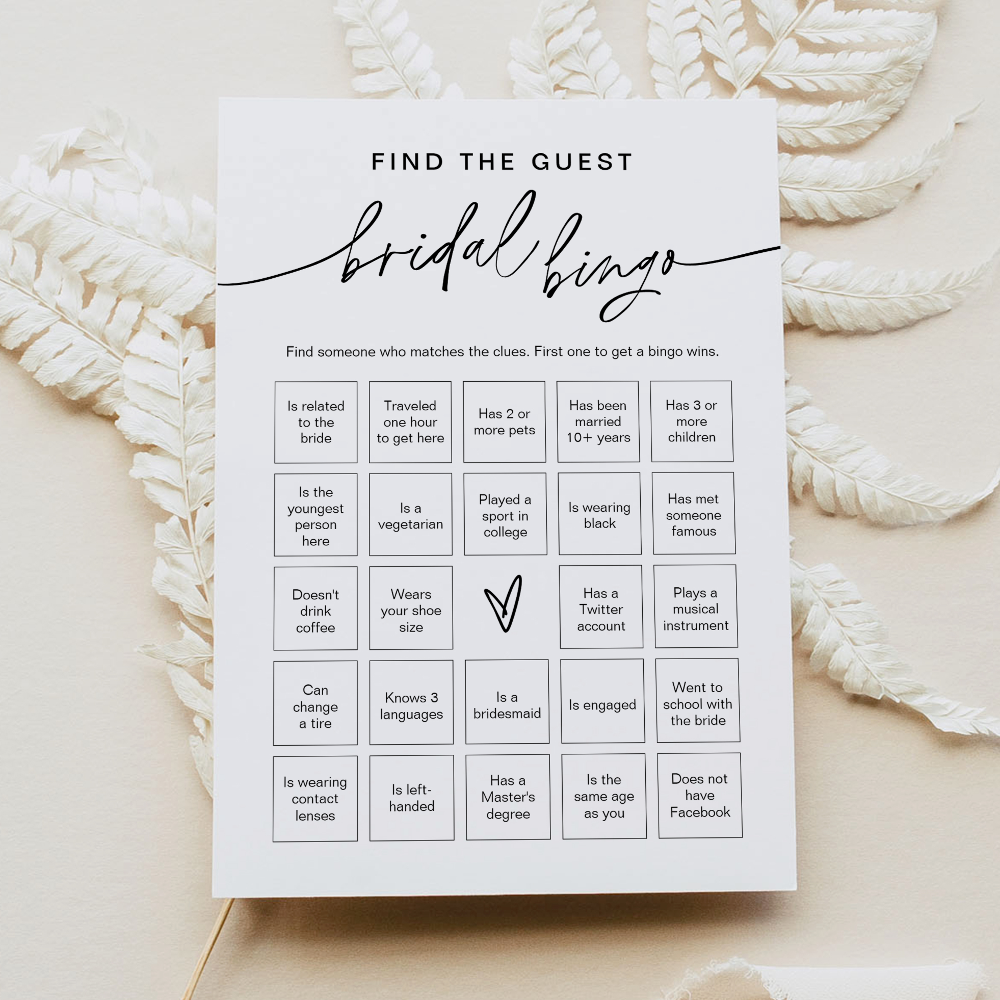 FIND THE GUEST
bridal bingo
Find someone who matches the clues. First one to get a bingo wins.
Is related
to the
bride
Traveled
one hour
to get here
Has 2 or
more pets
Has been
married
10+ years
Has 3 or
more
children
Is the
youngest
person
here
Is a
vegetarian
Played a
sport in
college
Is wearing
black
Has met
someone
famous
Doesn't
drink
coffee
Wears
your shoe
size
Has a
Twitter
account
Plays a
musical
instrument
Can
change
a tire
Knows 3
languages
Is a
bridesmaid
Is engaged
Went to
school with
the bride
Is wearing
contact
lenses
Is left-
handed
Has a
Master's
degree
Is the
same age
as you
Does not
have
Facebook